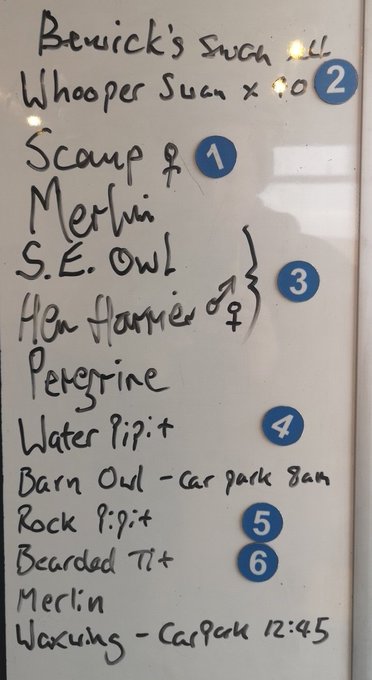 Bewick's Swan
Whooper Swan x 2
Scaup ♀ 1
Merlin
S.E. Owl
Hen Harrier ♂ ♀ } 3
Peregrine
Water Pipit 4
Barn Owl - car park 8am
Rock Pipit 5
Bearded Tit 6
Merlin
Waxwing - Car Park 12:45